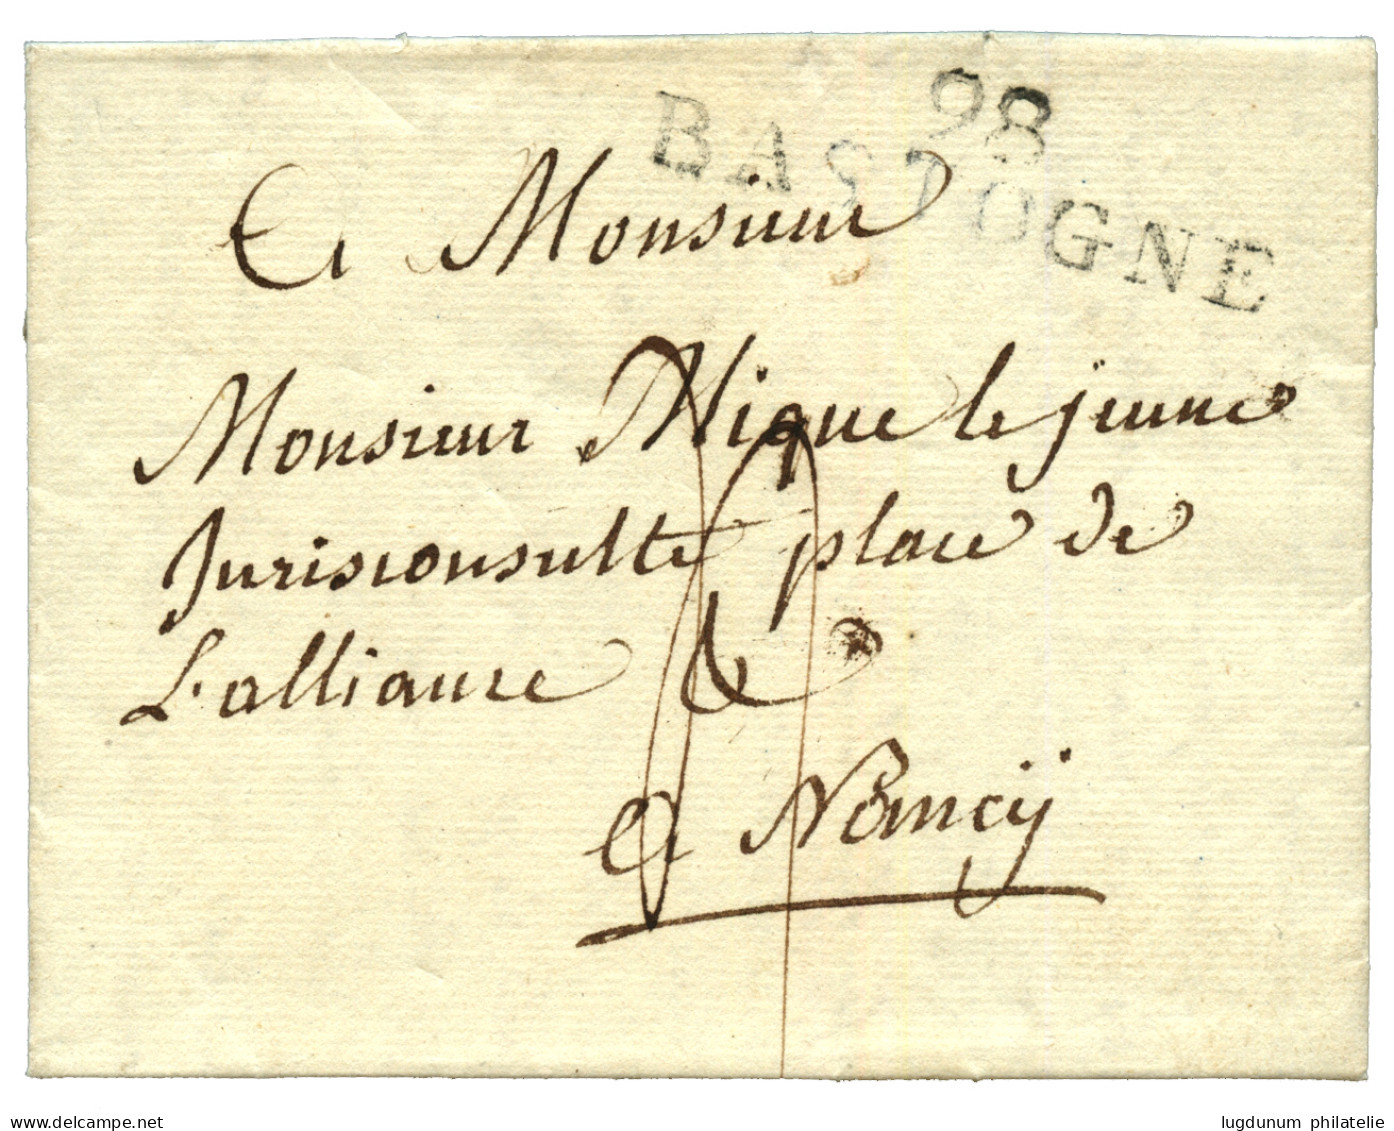 98
BASTOGNE
A Monsieur
Monsieur Mique le jeune
Jurisconsulte place de
L'alliance
a Nancij
delcampe.net
lugdunum philatelie